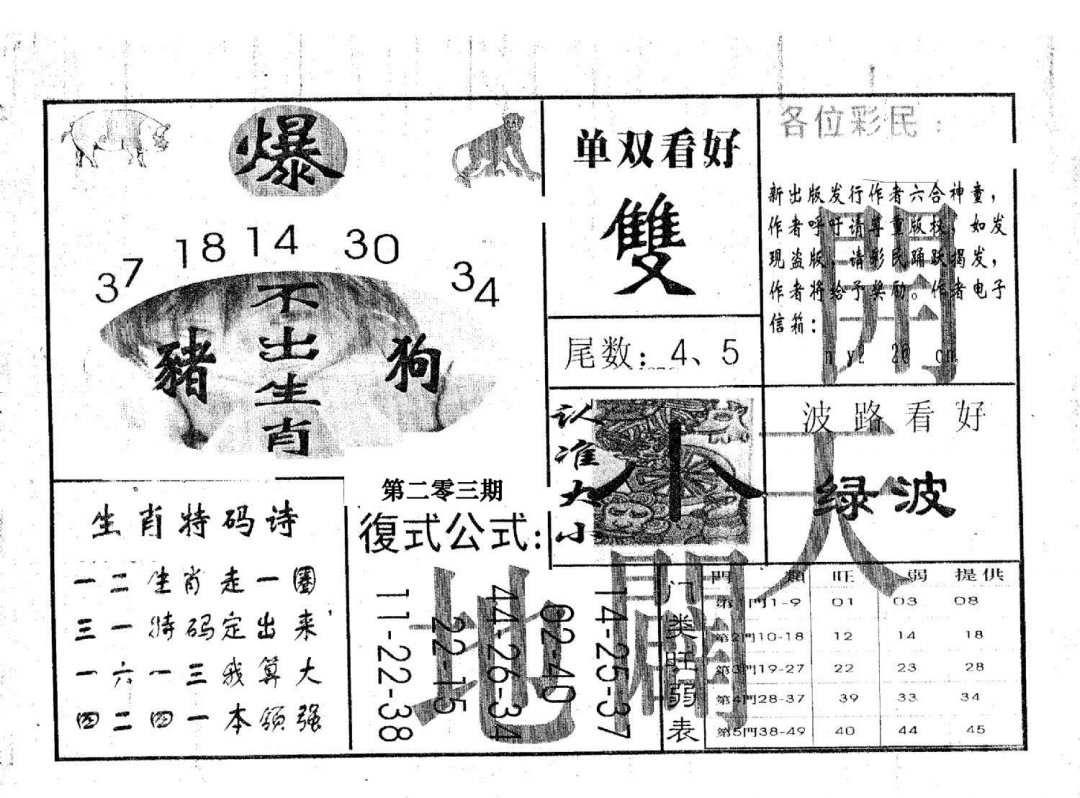 爆
37 18 14 30 34
不出生肖
豬
狗
单双看好
雙
尾数：4、5
各位彩民：
新出版发行作者六合神童，
作者呼吁请尊重版权，如发
现盗版，请彩民踊跃揭发，
作者将给予奖励。作者电子
信箱：
认准大小
小
波路看好
绿波
天
開
地
開
生肖特码诗
一二生肖走一圈
三一特码定出来
一六一三我算大
四二四一本领强
第二零三期
復式公式:
11-22-38
22-15
44-26-34
02-40
14-25-37
门类旺弱表
門類 旺 弱 提供
第1門1-9 01 03 08
第2門10-18 12 14 18
第3門19-27 22 23 28
第4門28-37 39 33 34
第5門38-49 40 44 45